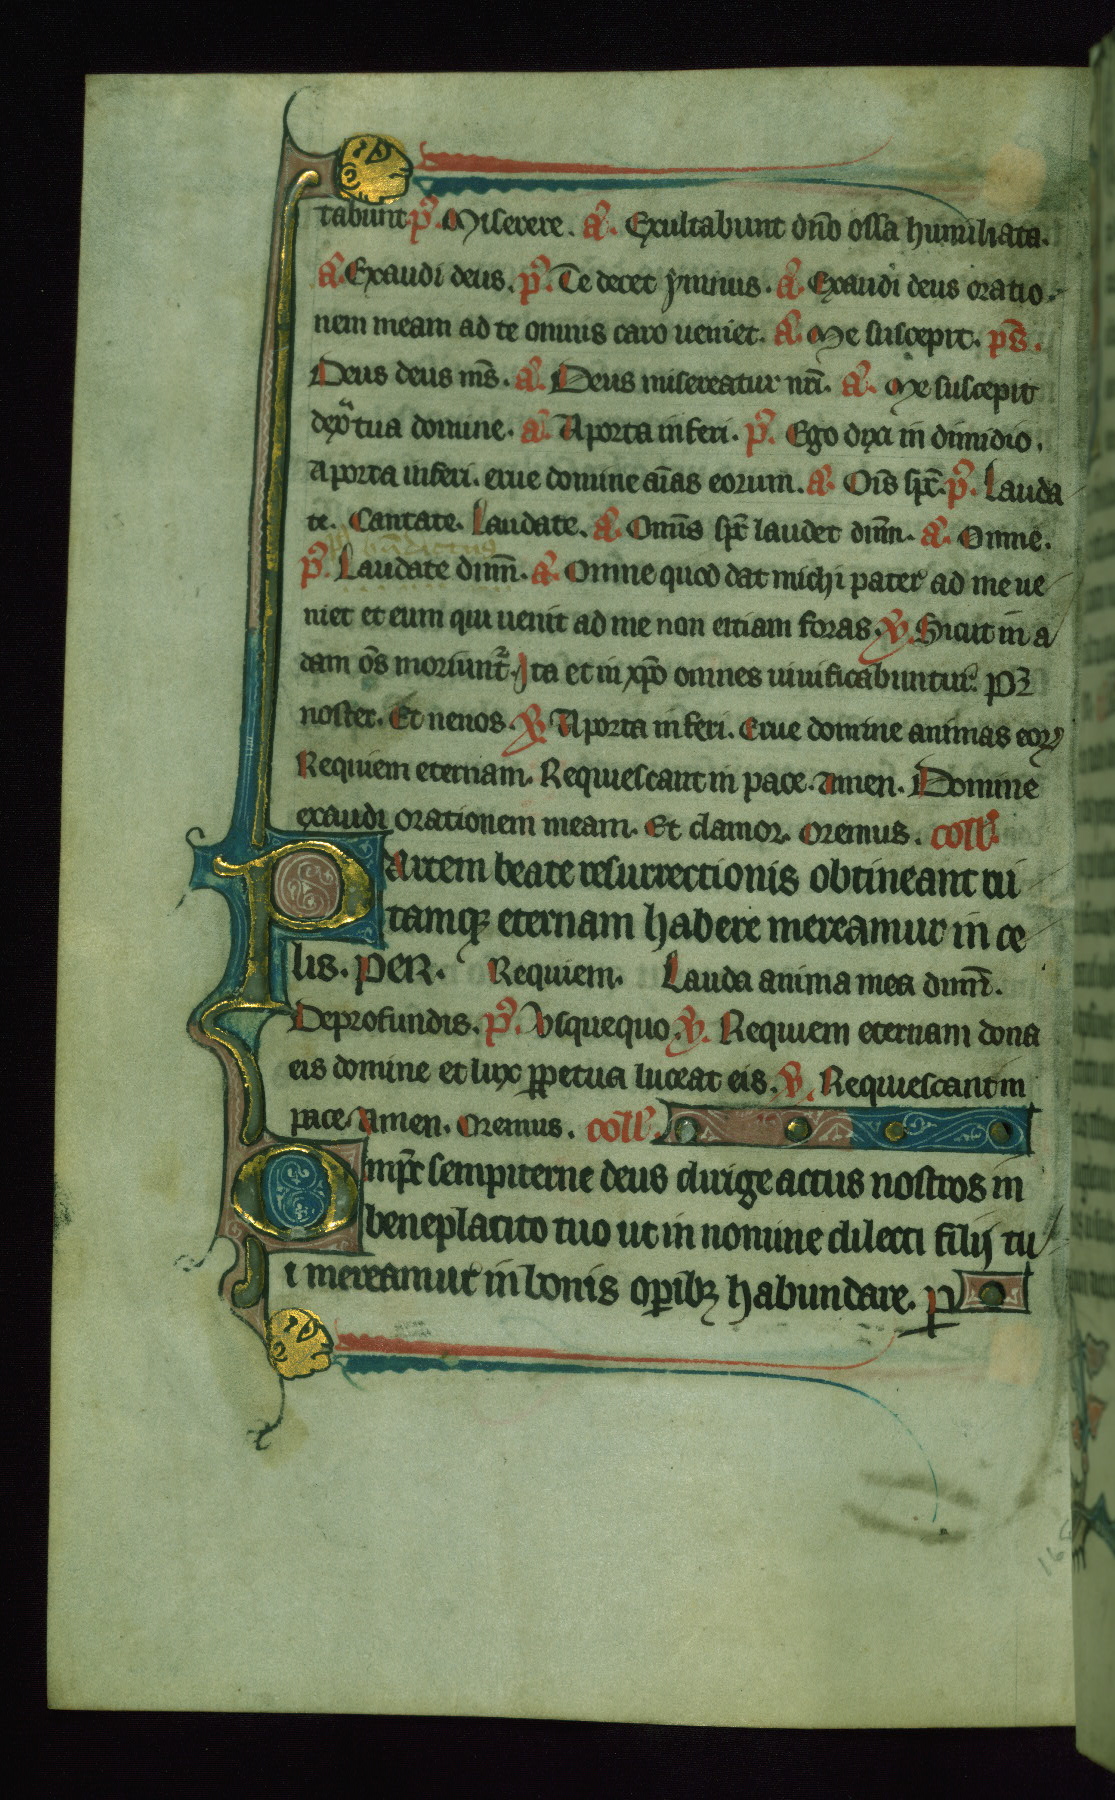 tabunt p̄s. Miserere. a᷑. Exultabunt dn̄o ossa humiliata.
a᷑. Exaudi deus. p̄s. Te decet ymnus. a᷑. Exaudi deus oratio
nem meam ad te omnis caro ueniet. a᷑. Me suscepit. ps̄.
Deus deus ms̄. a᷑. Deus misereatur nr̄i. a᷑. Me suscepit
dext̄a tua domine. a᷑. A porta inferi. p̄s. Ego dixi in dimidio.
A porta inferi. erue domine aīas eorum. a᷑. Oīs sp̄c. p̄s. Lauda
te. Cantate. Laudate. a᷑. Omīs sp̄c laudet dnm̄. a᷑. Omne.
p̄s. Laudate dnm̄. a᷑. Omne quod dat michi pater ad me ue
niet et eum qui uenit ad me non eiciam foras. ℣. Sicut in a
dam os̄ moriunt̄. Ita et in xp̄o omnes uiuificabuntur. Pr̄
noster. Et nenos. ℣. A porta inferi. Erue domine animas eoꝝ
Requiem eternam. Requiescant in pace. Amen. Domine
exaudi orationem meam. Et clamor. Oremus. coll̄.
Partem beate resurrectionis obtineant ui
tamqꝫ eternam habere mereamur in ce
lis. Per. Requiem. Lauda anima mea dnm̄.
Deprofundis. p̄s. Vsquequo. ℣. Requiem eternam dona
eis domine et lux ꝑpetua luceat eis. ℣. Requiescant in
pace Amen. Oremus. coll̄.
Omp̄s sempiterne deus dirige actus nostros in
beneplacito tuo ut in nomine dilecti filij tu
i mereamur in bonis oꝑibꝫ habundare. ꝑ